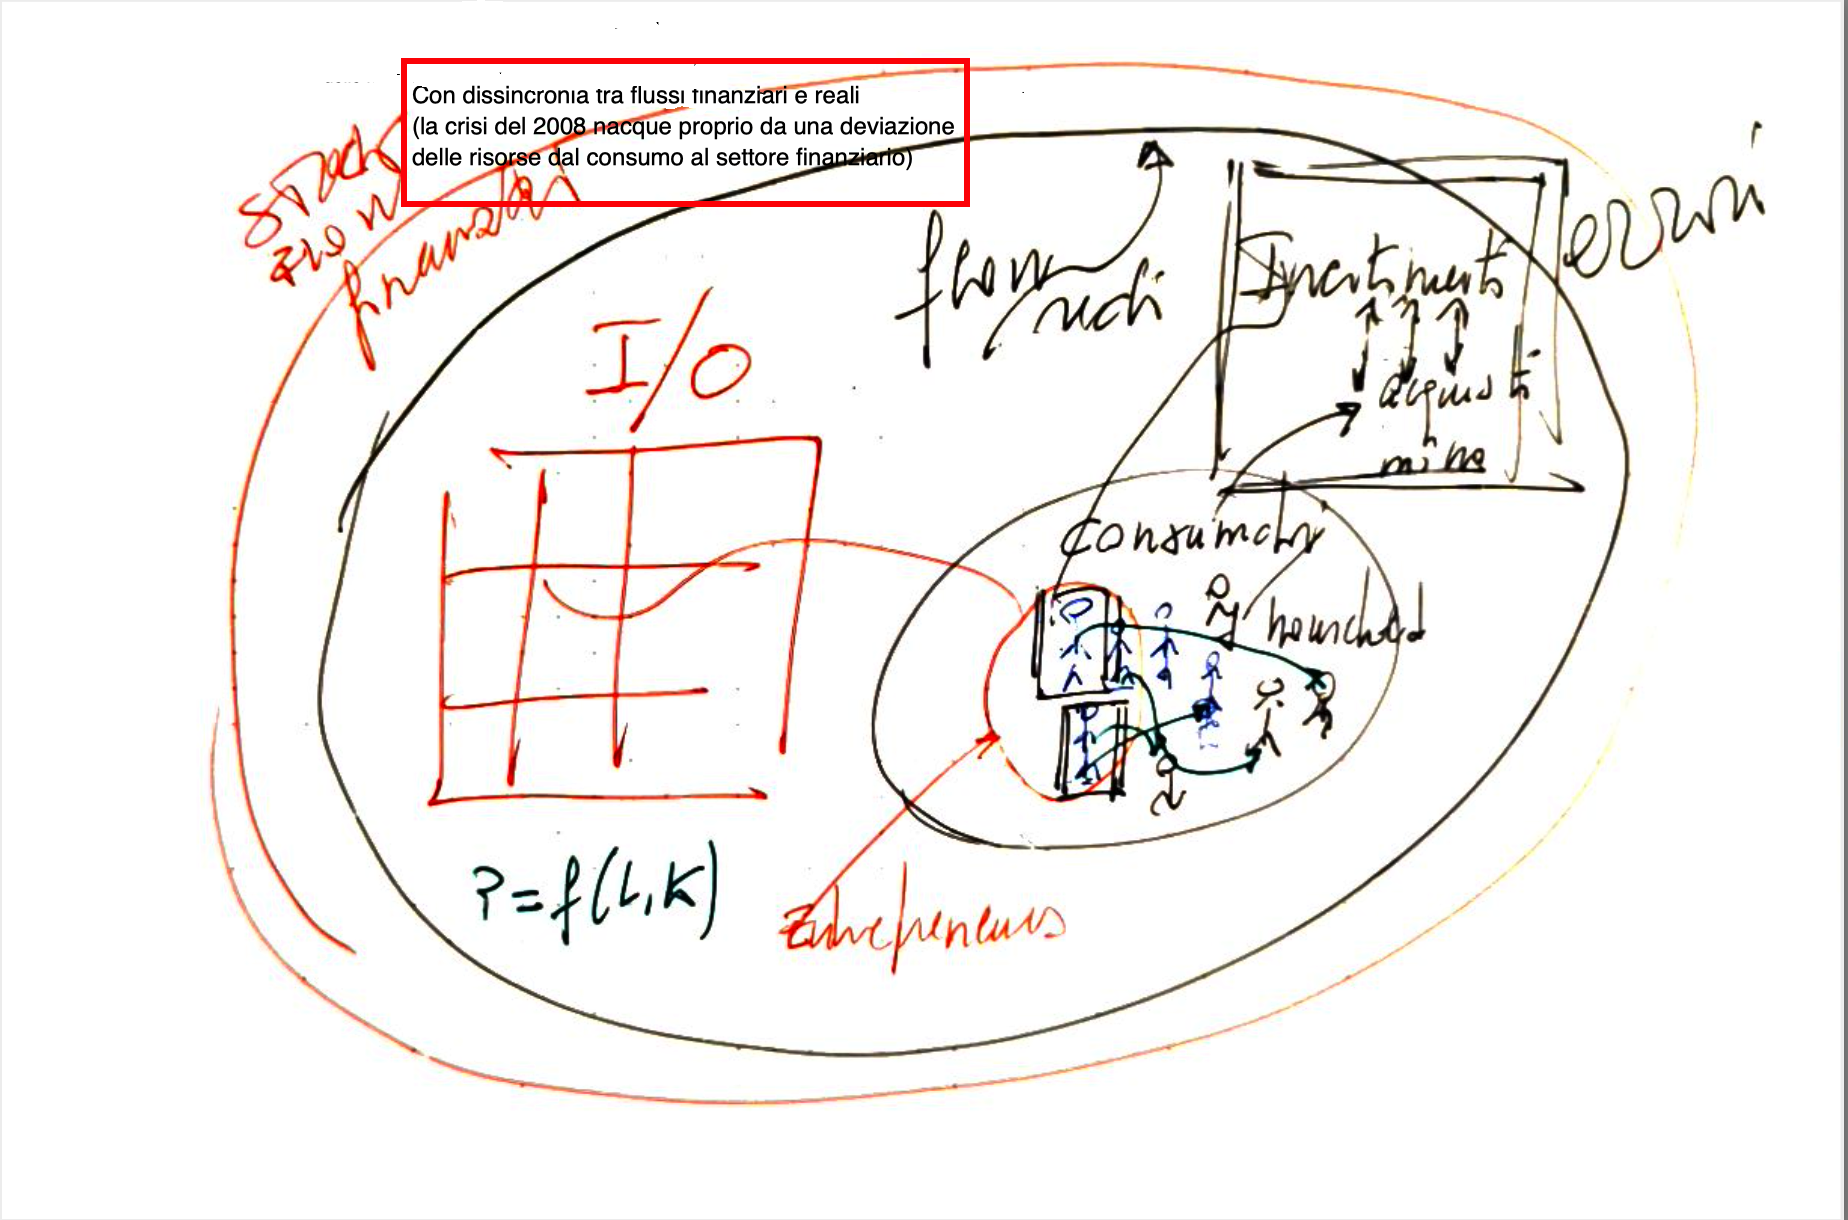 Con dissincronia tra flussi finanziari e reali
(la crisi del 2008 nacque proprio da una deviazione
delle risorse dal consumo al settore finanziario)
stock
finanziari
flow
reali
errori
I/O
acquisti
household
P=f(L,K)
Entrepreneurs